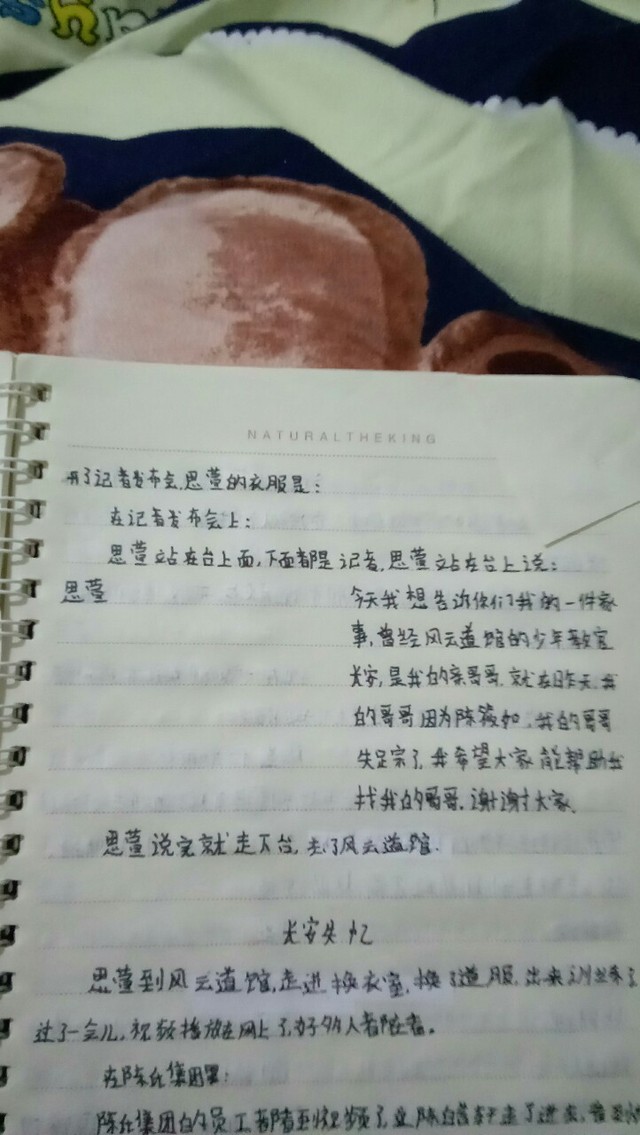 NATURALTHEKING
开了记者发布会,思萱的衣服是:
在记者发布会上:
思萱站在台上面,下面都是记者,思萱站在台上说:
思萱 今天我想告诉你们我的一件家
事,曾经风云道馆的少年教官
长安,是我的亲哥哥,就在昨天,我
的哥哥因为陈筱如,我的哥哥
失踪了,我希望大家能帮助我
找我的哥哥,谢谢大家.
思萱说完就走下台,去了风云道馆.
长安失忆
思萱到风云道馆,走进换衣室,换了道服,出来训练了
过了一会儿,视频播放在网上了,好多人都在看.
在陈氏集团里:
陈氏集团的员工都看到视频了,陈 走了进来,